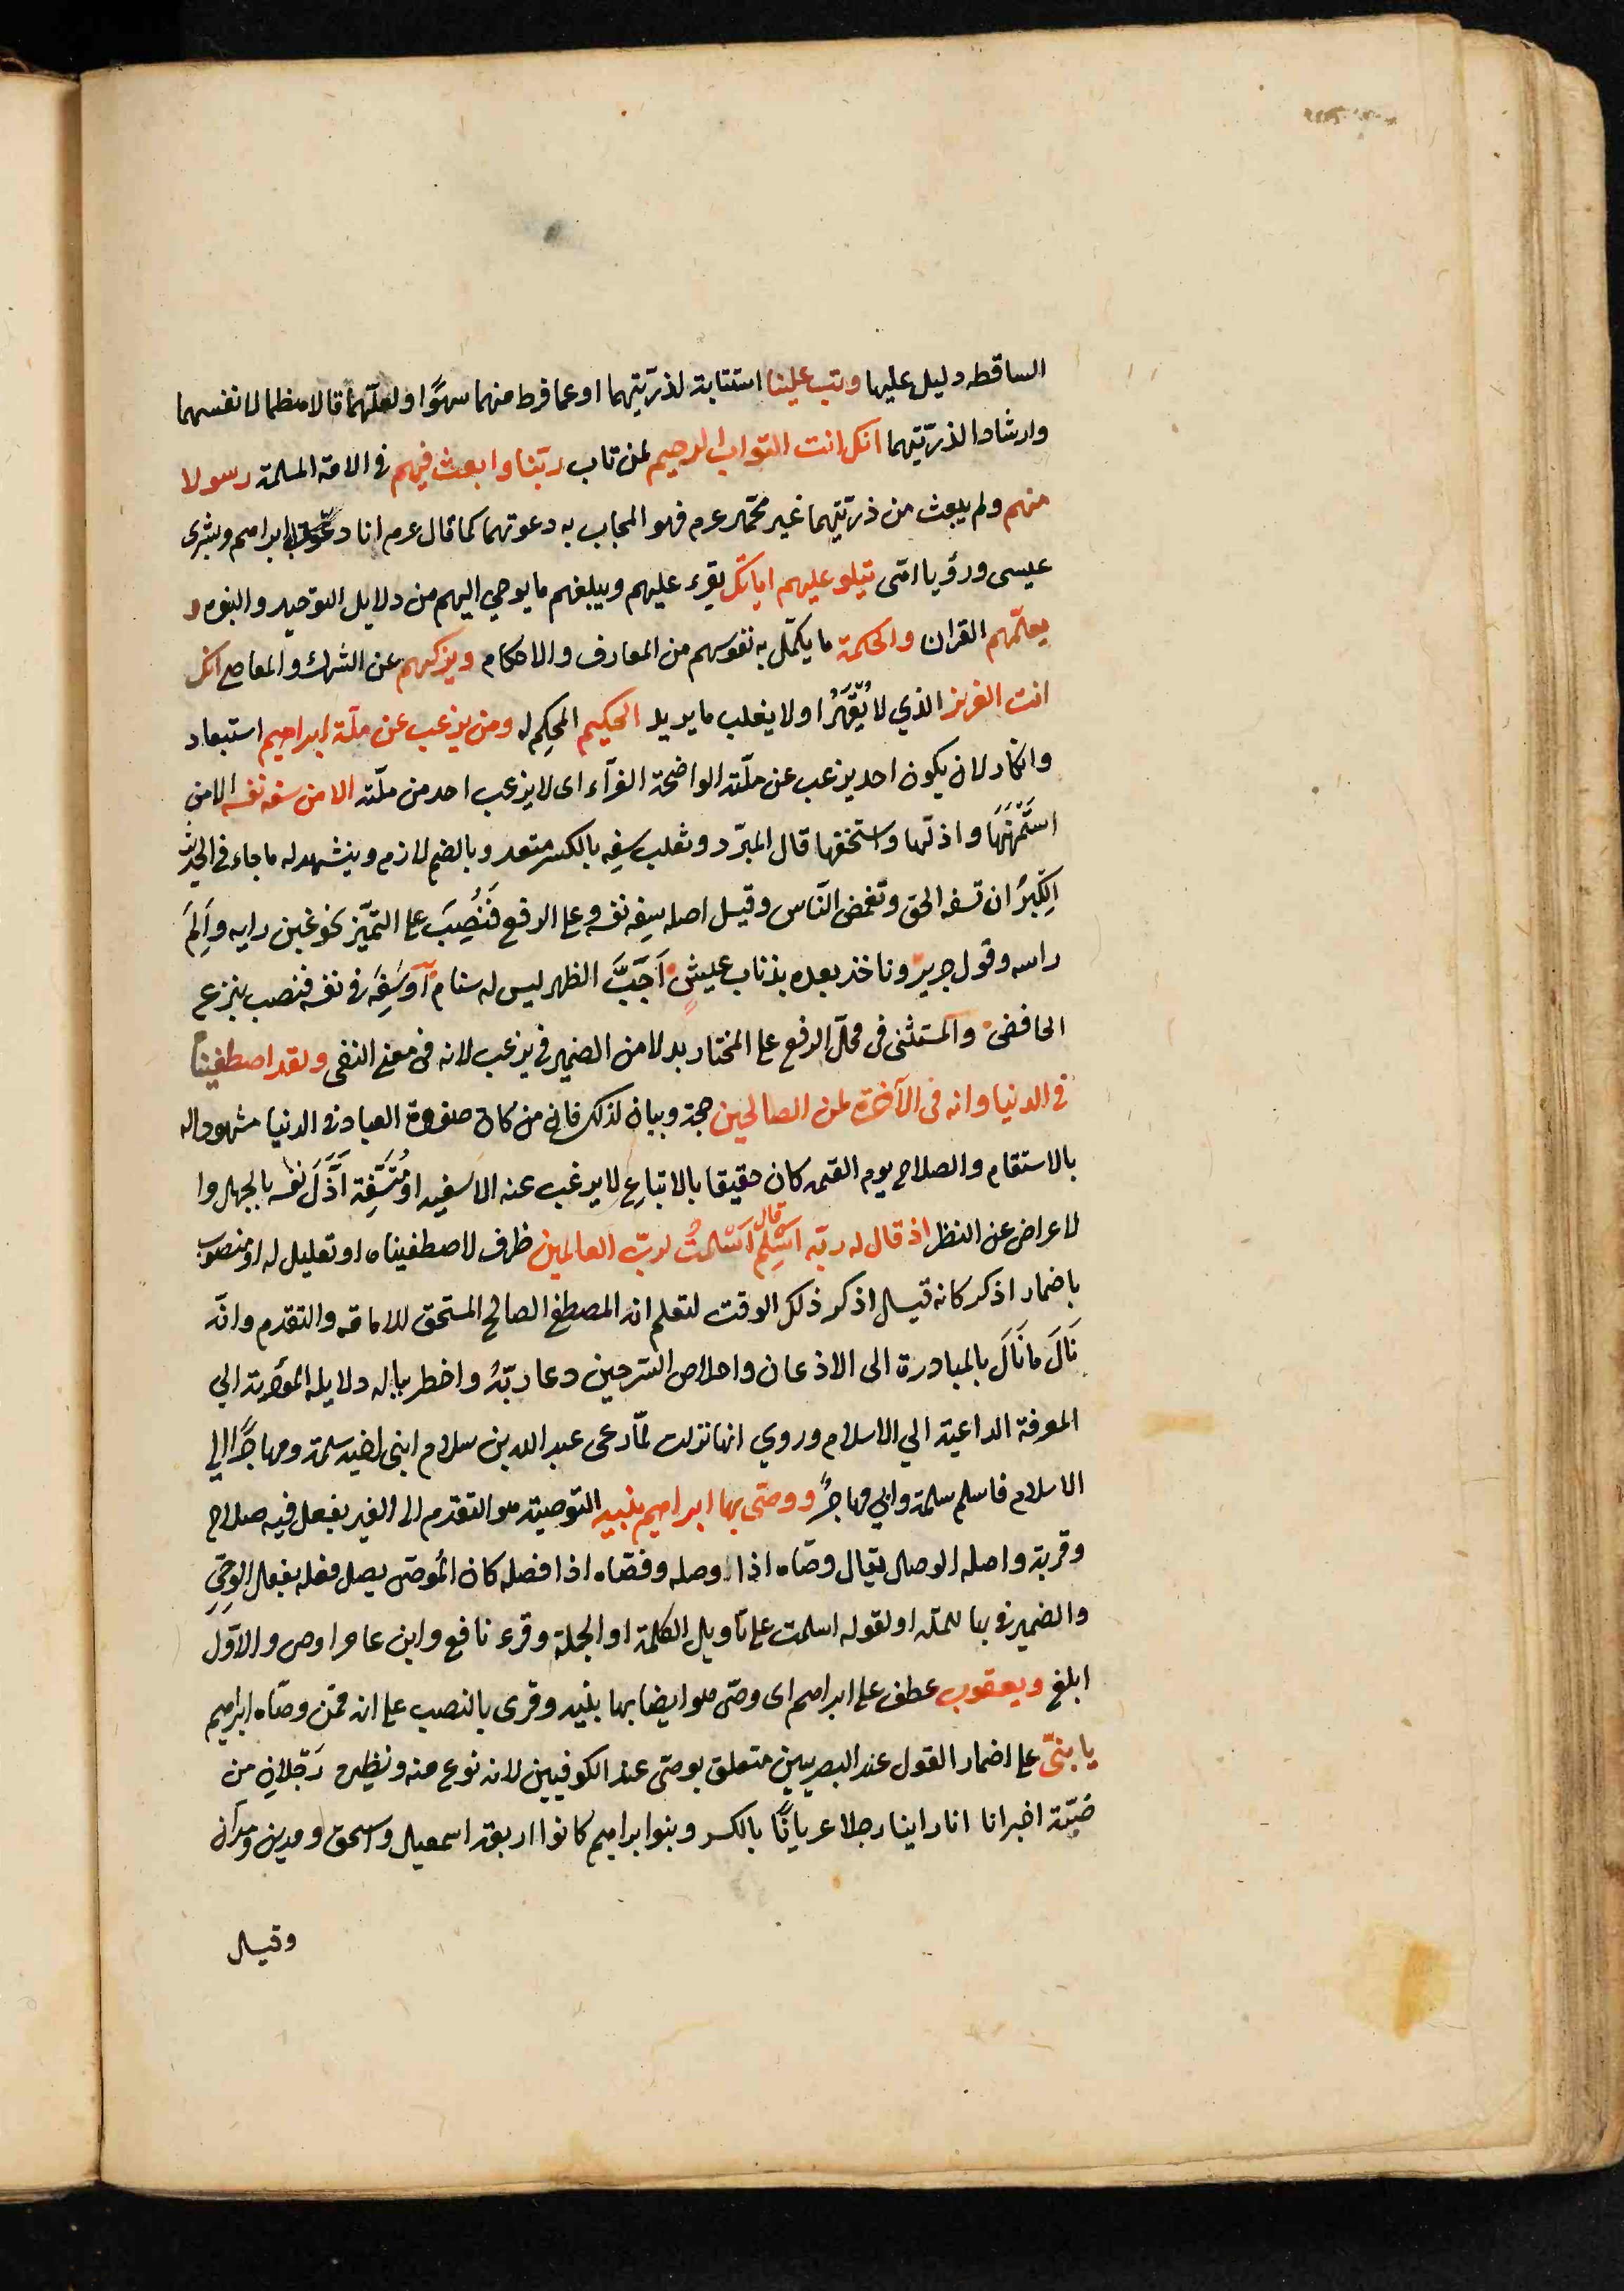 الساقطه دليل عليها وتب علينا استتابة لذرّيتهما او عما فرط منهما سهوًا ولعلّهما قالا هضما لانفسهما
وارشادا لذرّيتهما انك انت التواب الرحيم لمن تاب ربّنا وابعث فيهم في الامة المسلمة رسولا
منهم ولم يبعث من ذرّيتهما غير محمّد عم فهو المجاب به دعوتهما كما قال عم انا دعوة ابى ابراهيم وبشرى
عيسى ورؤيا امّى يتلو عليهم اياتك يقرء عليهم ويبلغهم ما يوحي اليهم من دلايل التوحيد والنبوة و
يعلّمهم القران والحكمة ما يكمّل به نفوسهم من المعارف والاحكام ويزكيهم عن الشرك والمعاصي انك
انت العزيز الذي لا يُقْهَرُ ولا يغلب ما يريد الحكيم المحكِم له ومن يرغب عن ملّة ابراهيم استبعاد
وانكار لان يكون احد يرغب عن ملّته الواضحة الغرّاء اى لا يرغب احد من ملّته الا من سفه نفسه الا من
اسْتَمْهَنَهَا واذلّها واستخفها قال المبرّد وثعلب سفِه بالكسر متعد وبالضم لازم ويشهد له ما جاء في الحديث
الكِبْرُ ان تسفه الحق وتغمض النّاس وقيل اصله سفِه نفسه على الرفع فَنُصِبَ على التميّز نحو غبن رايه واَلِمَ
راسه وقول جرير وناخذ بعده بذناب عيشٍ اَجَبَّ الظهر ليس له سنام اَوْ سَفِهَ في نفسه فنصب بنزع
الخافض والمستثنى في محلّ الرفع على المختار بدلا من الضمير في يرغب لانه في معنى النفى ولقد اصطفيناه
في الدنيا وانه في الآخرة لمن الصالحين حجة وبيان لذلك فان من كان صفوة العباد في الدنيا مشهودا له
بالاستقام والصلاح يوم القيمة كان حقيقا بالاتباع لا يرغب عنه الا سفيه او مُتَسَفِّه اَذَلَّ نفسه بالجهل وا
لاعراض عن النظر اذ قال له ربّه اَسْلِم قال اَسْلمتُ لربّ العالمين ظرف لاصطفيناه او تعليل له او منصوب
باضمار اذكر كانه قيل اذكر ذلك الوقت لتعلم انه المصطفى الصالح المستحق للامامة والتقدم وانّه
نَالَ مَا نَالَ بالمبادرة الى الاذعان واخلاص السّر حين دعا ربّهُ واخطر بباله دلايله المؤدّية الي
المعرفة الداعية الي الاسلام وروي انها نزلت لمّا دعى عبد الله بن سلام ابنى اخيه سلمة ومهاجرًا الي
الاسلام فاسلم سلمة وابي مهاجرٌ ووصّى بها ابراهيم بنيه التوصية هو التقدم الى الغير بفعل فيه صلاح
وقربة واصله الوصل يقال وصّاه اذا وصله وفصّاه اذا فصله كان المُوصّى يصل فعله بفعل الوصِّي
والضمير في بها للملّة او لقوله اسلمت على تأويل الكلمة او الجملة وقرء نافع وابن عامر اوصى والاوّل
ابلغ ويعقوب عطف على ابراهيم اى وصّى هو ايضا بها بنيه وقرى بالنصب على انه ممّن وصّاه ابراهيم
يا بنىّ على اضمار القول عند البصريين متعلق بوصّى عند الكوفيين لانه نوع منه ونظيره رَجُلانِ من
ضبّة اخبرانا انا راينا رجلا عريانًا بالكسر وبنو ابراهيم كانوا اربعة اسمعيل واسحق ومدين ومدان
وقيل